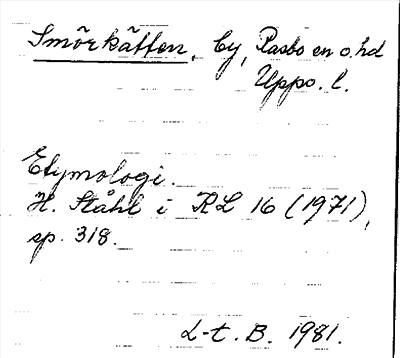 Smörkällen, by, Rasbo en o. hd
Upps. l.
Etymologi.
H. Ståhl i KL 16 (1971),
sp. 318.
L-t. B. 1981.